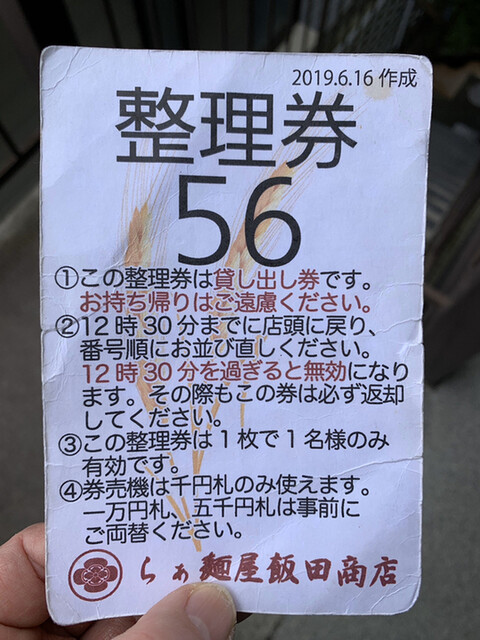 2019.6.16 作成
整理券
56
①この整理券は貸し出し券です。
お持ち帰りはご遠慮ください。
②12時30分までに店頭に戻り、
番号順にお並び直しください。
12時30分を過ぎると無効になり
ます。その際もこの券は必ず返却
してください。
③この整理券は1枚で1名様のみ
有効です。
④券売機は千円札のみ使えます。
一万円札、五千円札は事前に
ご両替ください。
らぁ麺屋飯田商店